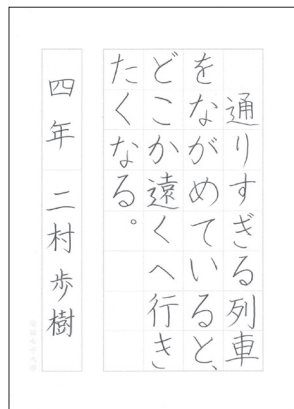 通りすぎる列車
をながめていると、
どこか遠くへ行き
たくなる。
四年 二村歩樹